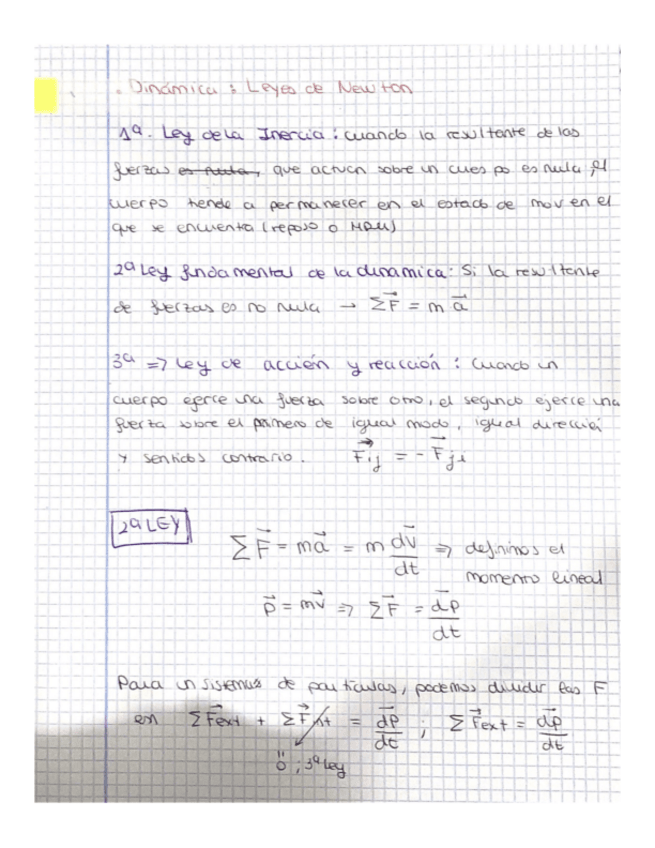 . Dinámica : Leyes de Newton
1ª. Ley de la Inercia : cuando la resultente de las
fuerzas es nula, que actuan sobre un cuerpo es nula, el
cuerpo tiende a permanecer en el estado de mov en el
que se encuenta (reposo o MRU)
2ª Ley fundamental de la dinamica: Si la resultente
de fuerzas es no nula → ΣF⃗ = m a⃗
3ª => Ley de acción y reacción : Cuando un
cuerpo ejerce una fuerza sobre otro, el segundo ejerce una
fuerza sobre el primero de igual modo, igual dirección
y sentidos contrario. F⃗ij = - F⃗ji
2ª LEY
ΣF⃗ = ma⃗ = m dv⃗/dt => definimos el
momento lineal
p⃗ = mv⃗ => ΣF⃗ = dp⃗/dt
Para un sistemas de particulas, podemos dividir las F
en ΣF⃗ext + ΣF⃗int = dp⃗/dt ; ΣF⃗ext = dp⃗/dt
0 ; 3ª Ley